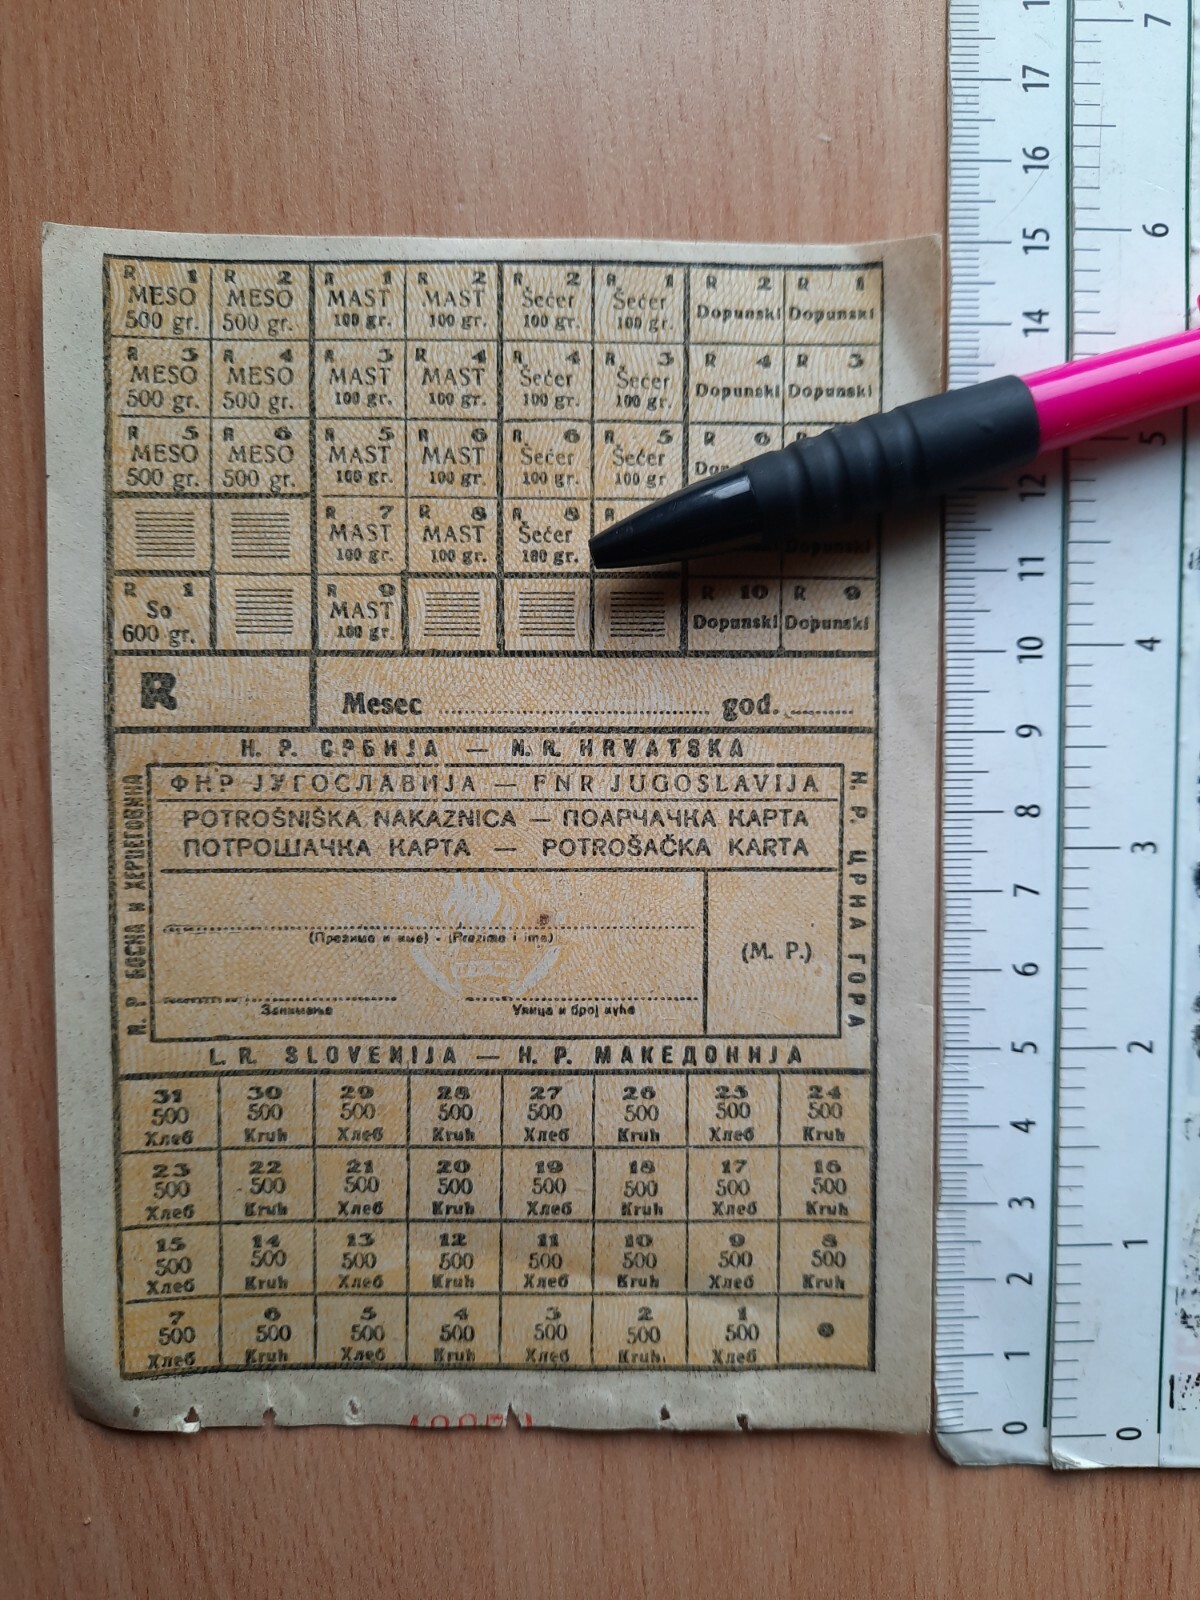 R 1 R 2 R 1 R 2 R 2 R 1 R 2 R 1
MESO MESO MAST MAST Šećer Šećer Dopunski Dopunski
500 gr. 500 gr. 100 gr. 100 gr. 100 gr. 100 gr.
R 3 R 4 R 3 R 4 R 4 R 3 R 4 R 3
MESO MESO MAST MAST Šećer Šećer Dopunski Dopunski
500 gr. 500 gr. 100 gr. 100 gr. 100 gr. 100 gr.
R 5 R 6 R 5 R 6 R 6 R 5 R 6 R
MESO MESO MAST MAST Šećer Šećer
500 gr. 500 gr. 100 gr. 100 gr. 100 gr. 100 gr
R 7 R 8 R 8 R
MAST MAST Šećer
100 gr. 100 gr. 100 gr. Dopunski
R 1 R 9 R 10 R 9
So MAST Dopunski Dopunski
600 gr. 100 gr.
R Mesec god.
Н. Р. СРБИЈА — N. R. HRVATSKA
Н. Р. БОСНА И ХЕРЦЕГОВИНА
ФНР ЈУГОСЛАВИЈА — FNR JUGOSLAVIJA
POTROŠNIŠKA NAKAZNICA — ПОАРЧАЧКА КАРТА
ПОТРОШАЧКА КАРТА — POTROŠAČKA KARTA
(Презиме и име) - (Prezime i ime)
(М. Р.)
Занимање Улица и број куће
Н. Р. ЦРНА ГОРА
L. R. SLOVENIJA — Н. Р. МАКЕДОНИЈА
31 30 29 28 27 26 25 24
500 500 500 500 500 500 500 500
Хлеб Kruh Хлеб Kruh Хлеб Kruh Хлеб Kruh
23 22 21 20 19 18 17 16
500 500 500 500 500 500 500 500
Хлеб Kruh Хлеб Kruh Хлеб Kruh Хлеб Kruh
15 14 13 12 11 10 9 8
500 500 500 500 500 500 500 500
Хлеб Kruh Хлеб Kruh Хлеб Kruh Хлеб Kruh
7 6 5 4 3 2 1
500 500 500 500 500 500 500
Хлеб Kruh Хлеб Kruh Хлеб Kruh Хлеб
17
16
15
14
12
11
10
9
8
7
6
5
4
3
2
1
0
7
6
5
4
3
2
1
0